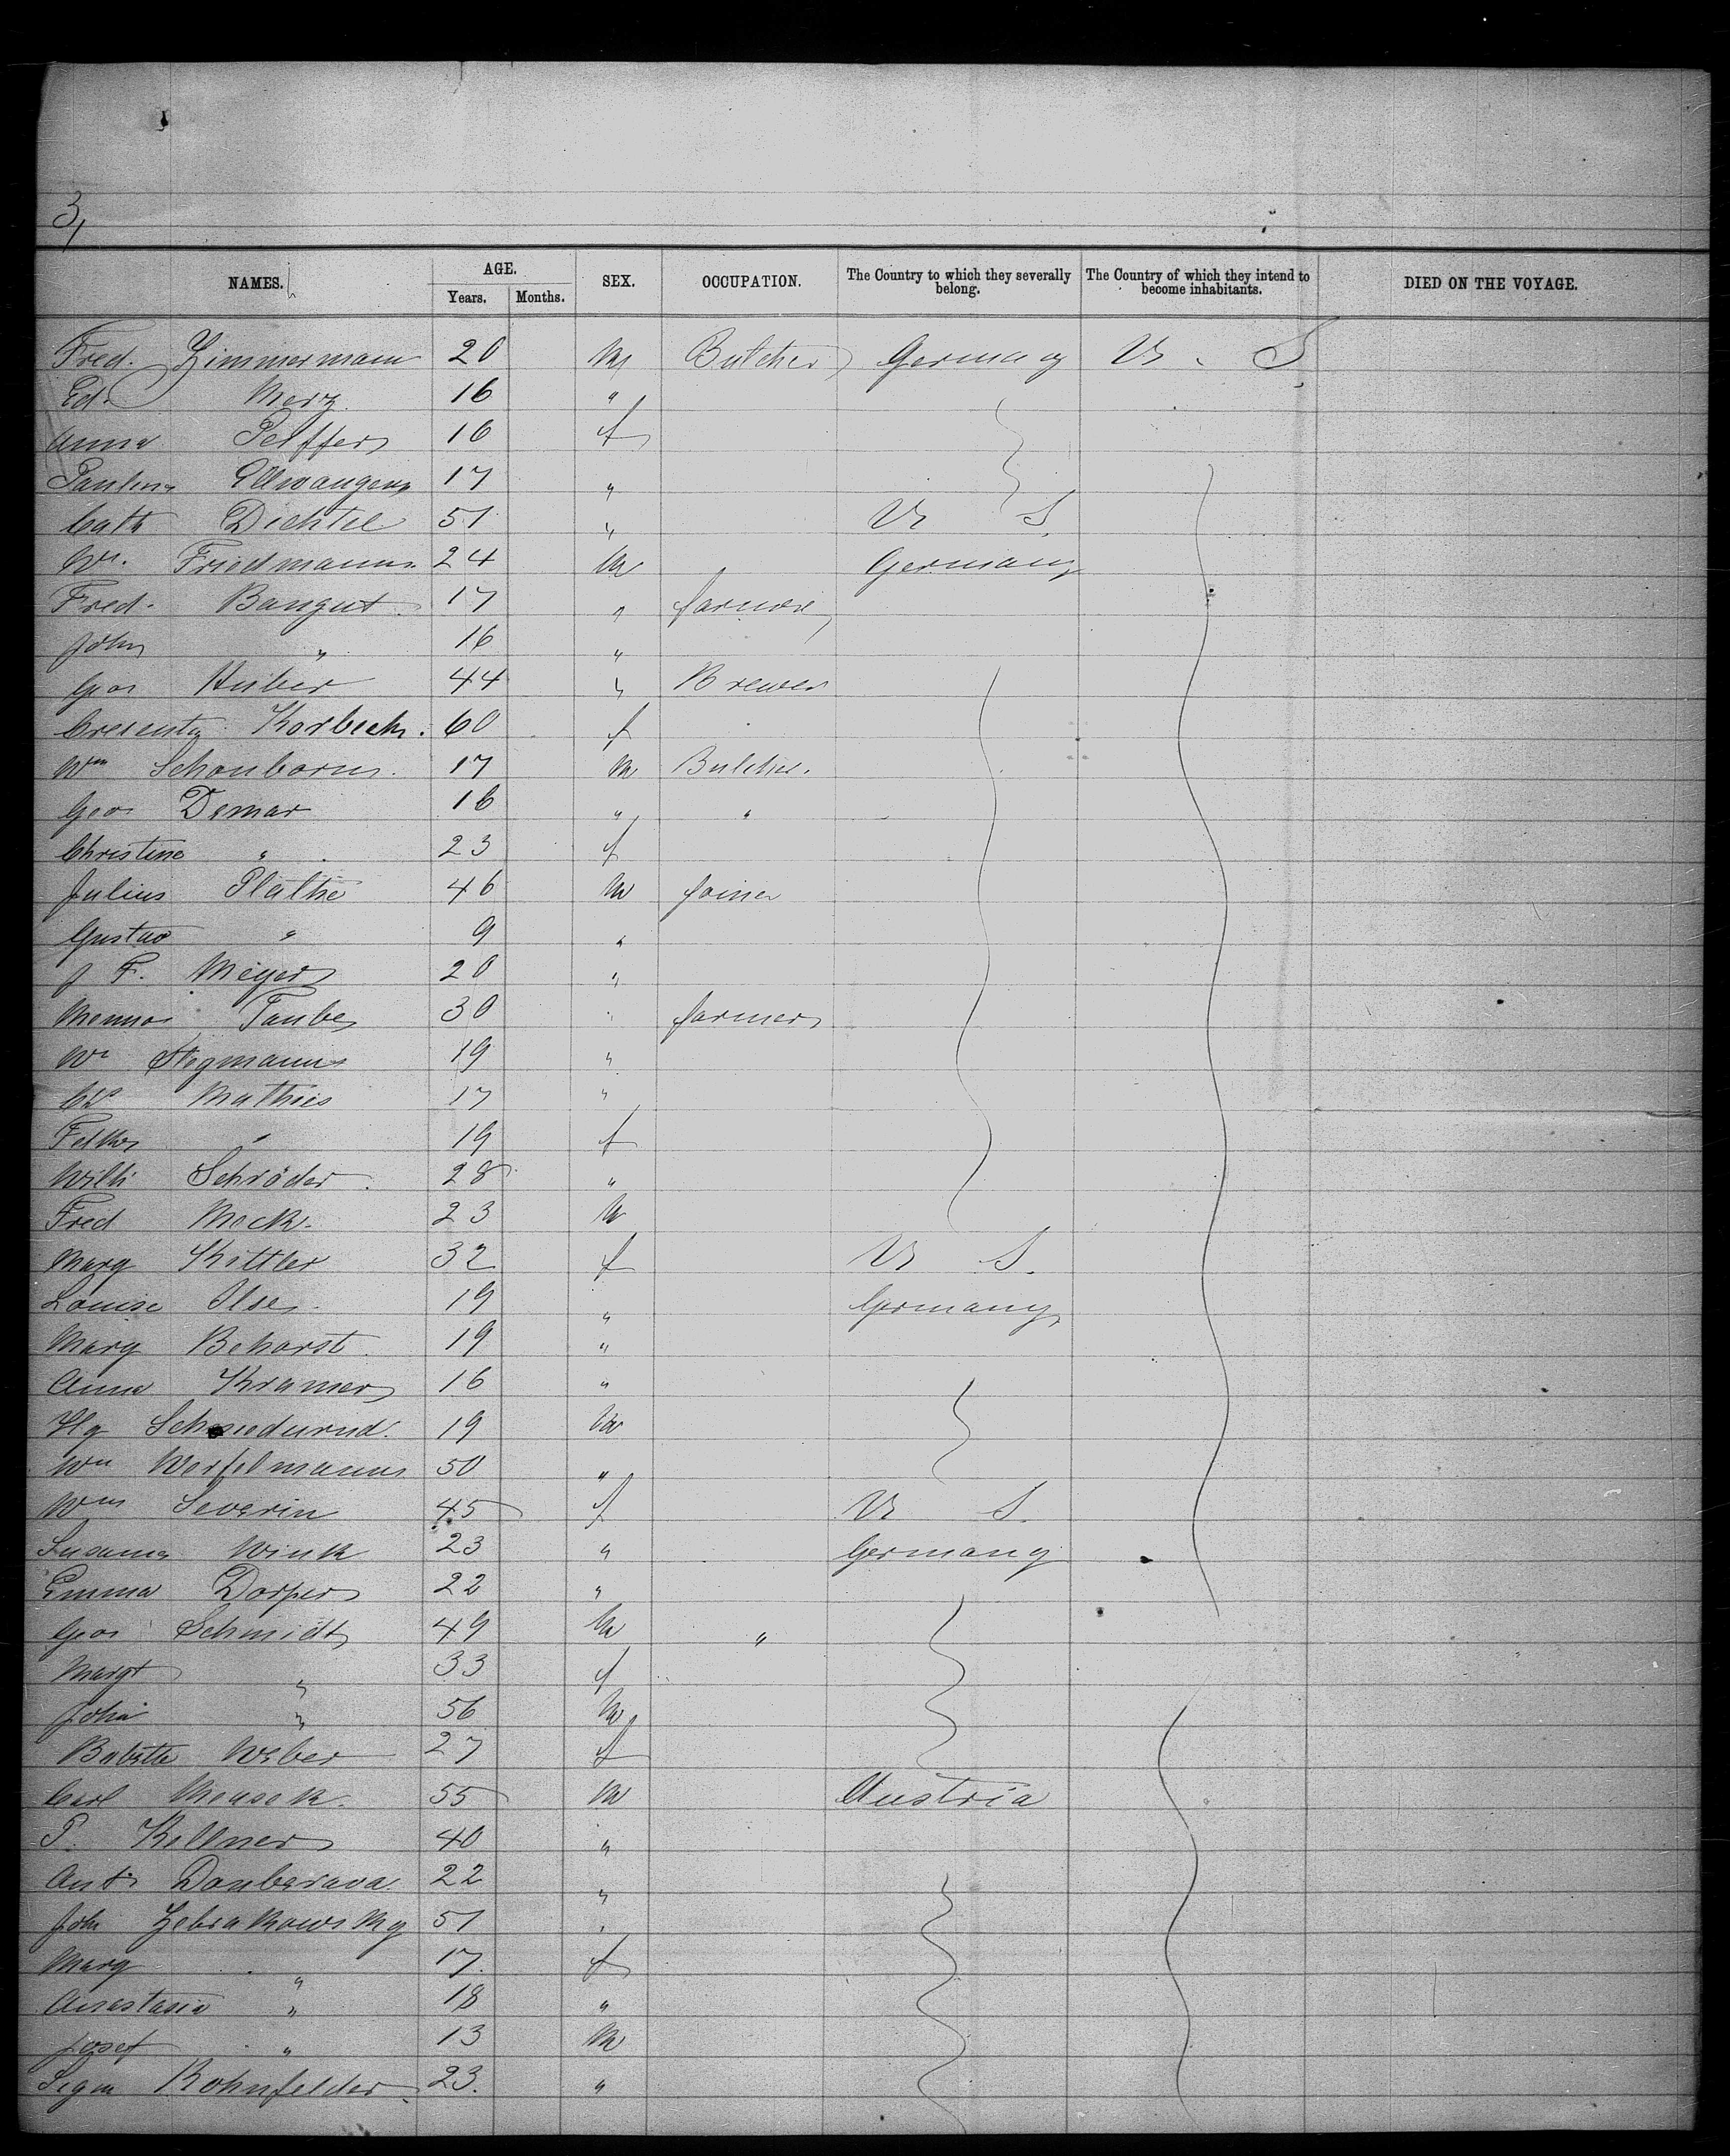 3,
NAMES. AGE. SEX. OCCUPATION. The Country to which they severally belong. The Country of which they intend to become inhabitants. DIED ON THE VOYAGE.
Years. Months.
Fred. Zimmermann 20 M Butcher Germany U. S.
Ed. Merz 16 "
Anna Peiffer 16 f
Paulina Ellwanger 17 "
Cath Dichtel 51 " U S.
Wm. Friedmann 24 M Germany
Fred. Bangut 17 " farmer
John " 16 "
Geo Huber 44 " Brewer
Cresentia Korbeck. 60 f
Wm Schonborn. 17 M Butcher.
Geo Demar 16 " "
Christine " 23 f
Julius Plathe 46 M Joiner
Gustav " 9 "
J F. Meyer 20 "
Menno Taube 30 " farmer
Wm Stegmann 19 "
Chs Mathies 17 "
" 19 f
Willi Schröder 28 "
Fred Mock. 23 M
Marg Kittler 32 f U S.
Louise Ilse 19 " Germany
Marg Behorst 19 "
Anna Kramer 16 "
Hy 19 M
Wm Werfelmann 50 "
Wm Severin 45 f U S.
Susanna Wink 23 " Germany
Emma Dorper 22 "
Geo Schmidt 49 M "
Margt " 33 f
John " 56 M
Babette Weber 27 f
Carl Mensek. 55 M Austria
P. Kellner 40 "
Ant. Donberava 22 "
Joh Zebrakowsky 51 "
Marg " 17. f
Anastasia " 18 "
Josef " 13 M
Sigm Rohnfelder 23. "